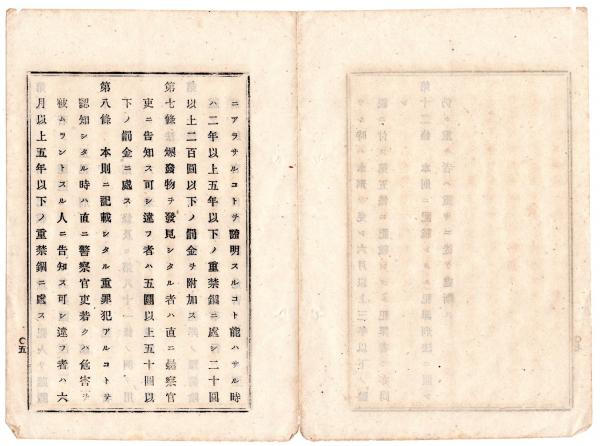 ニアラサルコトヲ證明スルコト能ハサル時
ハ二年以上五年以下ノ重禁錮ニ處シ二十圓
以上二百圓以下ノ罰金ヲ附加ス
第七條 爆發物ヲ發見シタル者ハ直ニ警察官
吏ニ告知ス可シ違フ者ハ五圓以上五十圓以
下ノ罰金ニ處ス
第八條 本則ニ記載シタル重罪犯アルコトヲ
認知シタル時ハ直ニ警察官吏若クハ危害ヲ
被ムラントスル人ニ告知ス可シ違フ者ハ六
月以上五年以下ノ重禁錮ニ處ス
〇五